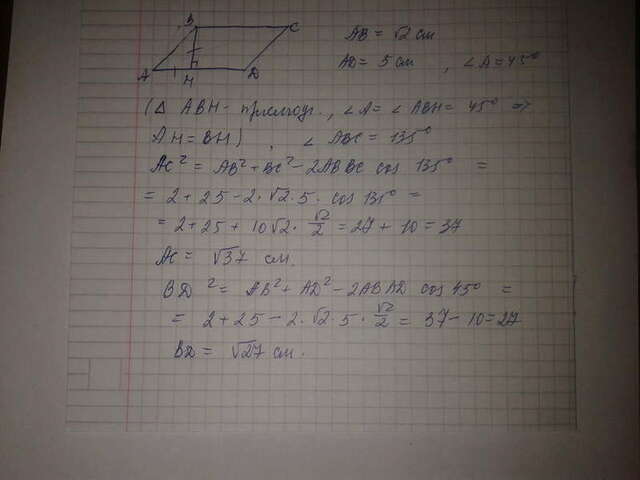 B C
A H D
AB = √2 см
AD = 5 см , ∠A = 45°
(△ ABH - прямоуг., ∠A = ∠ABH = 45° =>
AH = BH) , ∠ ABC = 135°
AC² = AB² + BC² - 2AB BC cos 135° =
= 2 + 25 - 2 · √2 · 5 · cos 135° =
= 2 + 25 + 10√2 · √2/2 = 27 + 10 = 37
AC = √37 см.
BD² = AB² + AD² - 2AB AD cos 45° =
= 2 + 25 - 2 · √2 · 5 · √2/2 = 37 - 10 = 27
BD = √27 см.